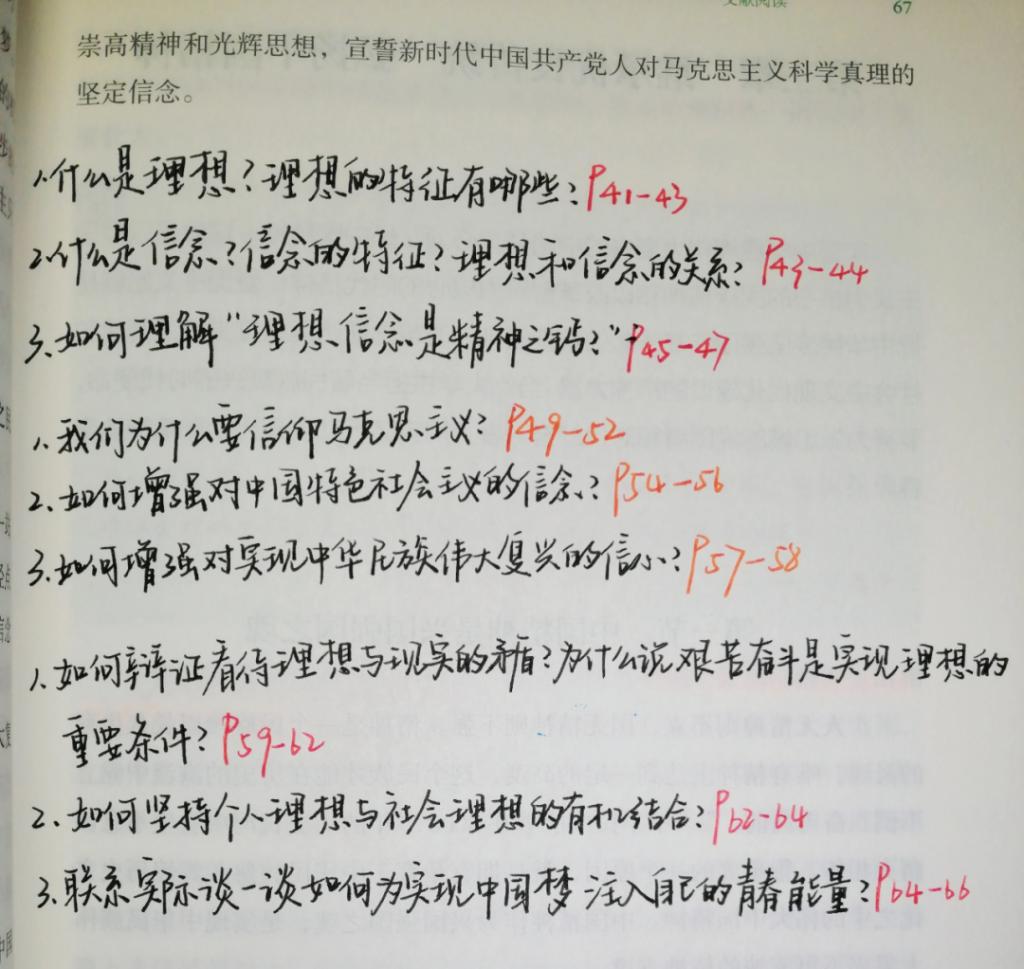 文献阅读 67
崇高精神和光辉思想，宣誓新时代中国共产党人对马克思主义科学真理的
坚定信念。
1.什么是理想？理想的特征有哪些？P41-43
2.什么是信念？信念的特征？理想和信念的关系？P43-44
3.如何理解“理想信念是精神之钙？”P45-47
1.我们为什么要信仰马克思主义？P49-52
2.如何增强对中国特色社会主义的信念？P54-56
3.如何增强对实现中华民族伟大复兴的信心？P57-58
1.如何辩证看待理想与现实的矛盾？为什么说艰苦奋斗是实现理想的
重要条件？P59-62
2.如何坚持个人理想与社会理想的有机结合？P62-64
3.联系实际谈一谈如何为实现中国梦注入自己的青春能量？P64-66